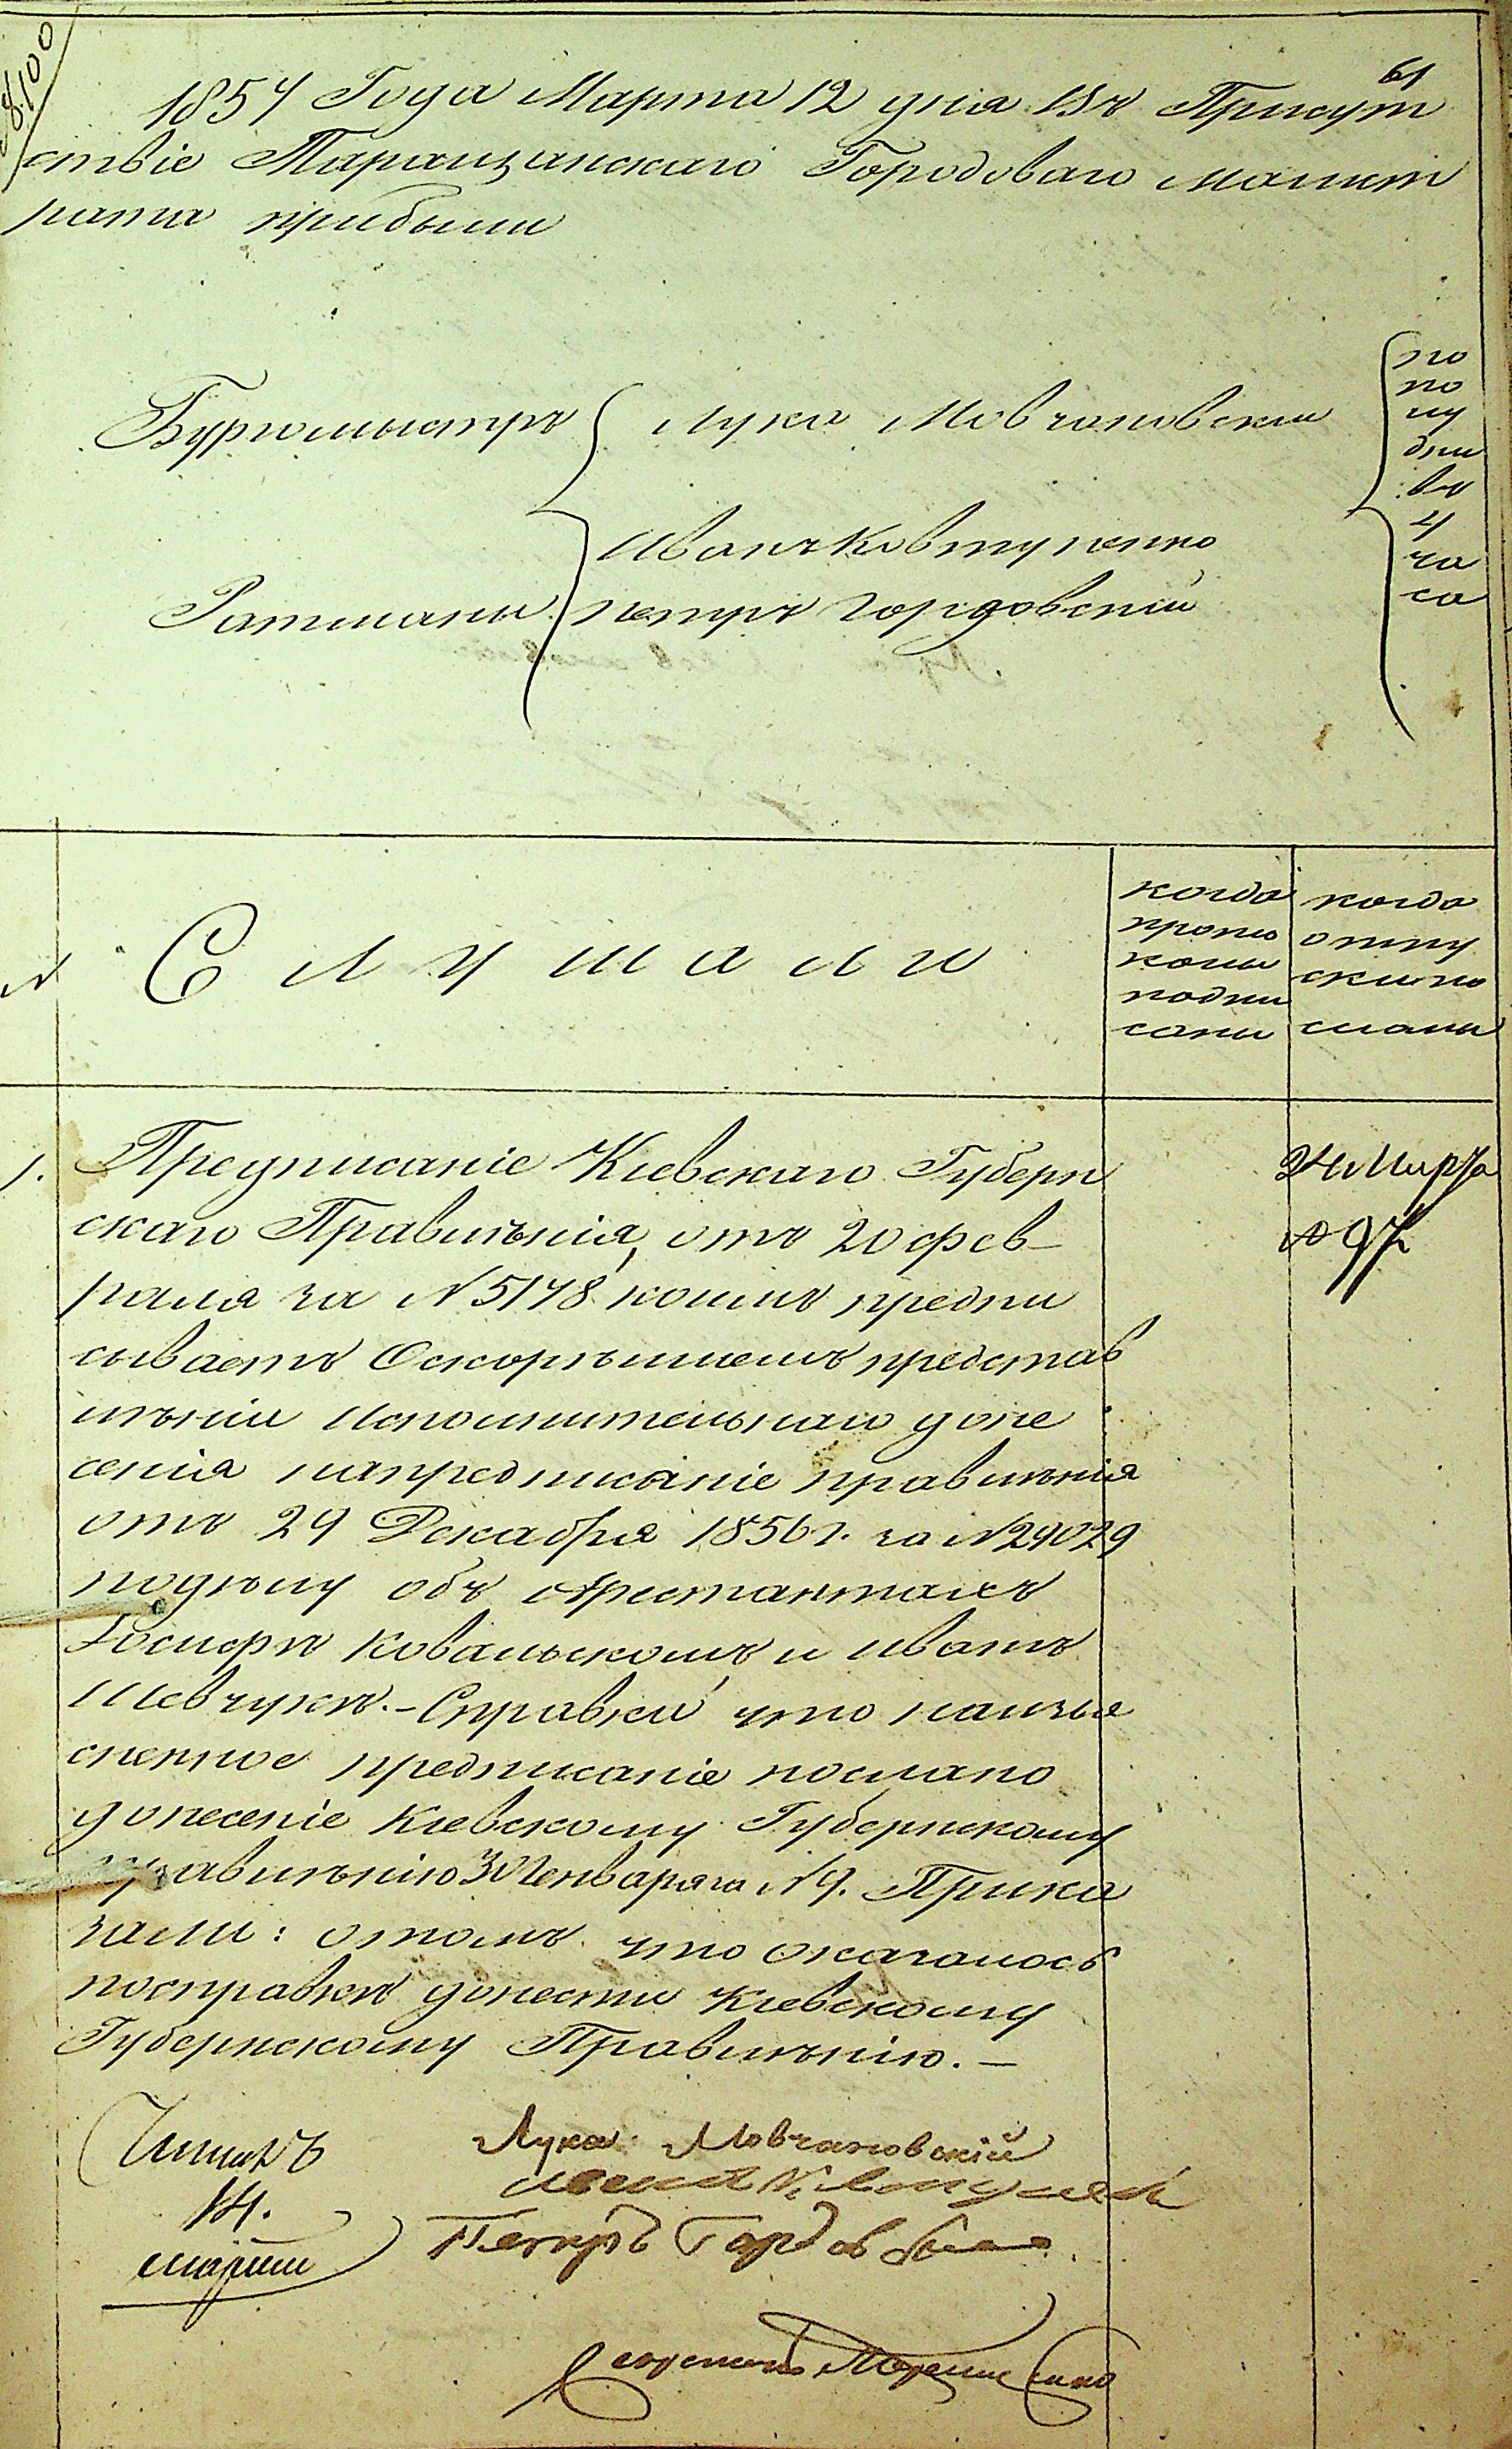 61
1857 Года Марта 12 дня Въ Присут
ствіе Таращанскаго Городоваго магист
рата прибыли
Бургомыстръ Лука Мовчановскій
Иванъ Ковтуненко
Ратманы Петръ Гордовскій
по
по
лу
дни
въ
4
ча
са
N
Слушали
когда
прото
колы
подпи
саны
когда
отпу
ски по
сланы
1. Предписаніе Кіевскаго Губерн
скаго Правленія, отъ 20 фев-
раля за N 5178 коимъ предпи
сываетъ О скорѣшшемъ представ
лѣніи Исполнительнаго доне
сенія напредписаніе правлѣнія
отъ 29 Декабря 1856 г. за N 29029
подѣлу объ Арестантахъ
Іосифѣ Ковальскомъ и Иванѣ
Шевчукѣ.- Справки, что наизъя
сненное предписаніе послано
донесеніе Кіевскому Губернскому
правлѣнію 30 Генваря за N 9. Прика
зали: о томъ что оказалось
посправкѣ донести Кіевскому
Губернскому Правлѣнію. -
24 Марта
N 97
14.
марта
Лука Мовчановскій
Петръ Гордовскій